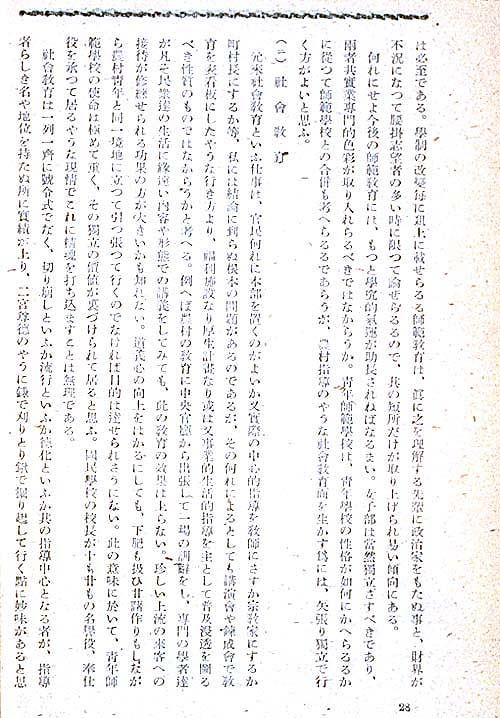 は必至である。學制の改變每に俎上に載せらるる師範敎育は、眞に之を理解する先輩に政治家をもたぬ事と、財界が
不況になつて腰掛志望者の多い時に限つて論ぜらるるので、其の短所だけが取り上げられ易い傾向にある。
何れにせよ今後の師範敎育には、もつと學究的氣運が助長されねばなるまい。女子部は當然獨立さすべきであり、
兩者共實業專門的色彩が取り入れらるべきではなからうか。靑年師範學校は、靑年學校の性格が如何にかへらるるか
に從つて師範學校との合併も考へらるるであらうが、農村指導のやうな社會敎育面を生かす爲には、矢張り獨立で行
く方がよいと思ふ。
(二) 社會敎育
元來社會敎育といふ仕事は、官民何れに本部を置くのがよいか又實際の中心的指導を敎師にさすか宗敎家にするか
町村長にするか等、私には結論に到らぬ根本の問題があるのであるが、その何れによるとしても講演會や鍊成會で敎
育を表看板にしたやうな行き方より、福利施設なり厚生計畫なり或は又事業的生活的指導を主として普及浸透を圖る
べき性質のものではなからうかと考へる。例へば農村の敎育に中央官廳から出張して一場の訓辭をし、專門の學者達
が凡そ民衆達の生活に緣遠い內容や形態での講義をしてみても、此の敎育の效果は上らない。珍しい上流の來客への
接待が修練せられる功果の方が大きいかも知れない。道義心の向上をはかるにしても、下肥も扱ひ甘藷作りもしなが
ら農村靑年と同一境地に立つて引つ張つて行くのでなければ目的は達せられさうにない。此の意味に於いて、靑年師
範學校の使命は極めて重く、その獨立の價値が裏づけられて居ると思ふ。國民學校の校長が十も廿もの名譽役、奉仕
役を承つて居るやうな現情でこれに精魂を打ち込ますことは無理である。
社會敎育は一列一齊に號令式でだく、切り崩しといふか流行といふか德化といふか其の指導中心となる者が、指導
者らしき名や地位を持たぬ所に實績が上り、二宮尊德のやうに鎌で刈りとり鍬で掘り起して行く點に妙味があると思
28